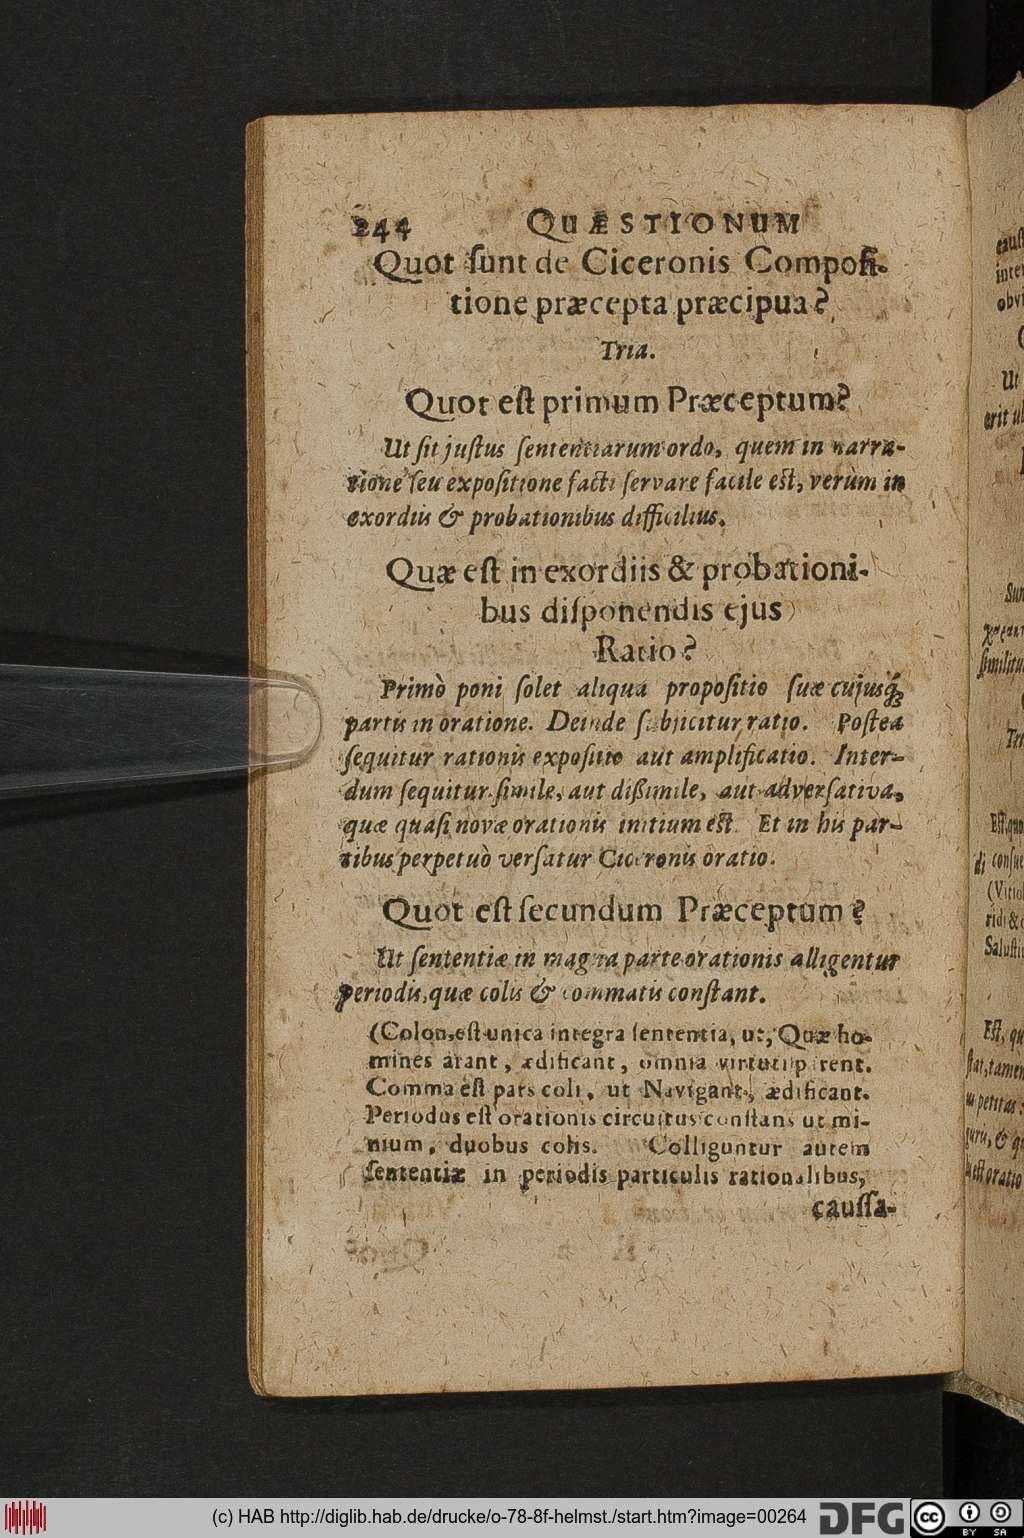 244 QUÆSTIONUM
Quot ſunt de Ciceronis Compoſi-
tione præcepta præcipua?
Tria.
Quot eſt primum Præceptum?
Ut ſit juſtus ſententiarum ordo, quem in narra-
tione ſeu expoſitione facti ſervare facile eſt, verùm in
exordiis & probationibus difficilius.
Quæ eſt in exordiis & probationi-
bus diſponendis ejus
Ratio?
Primò poni ſolet aliqua propoſitio ſuæ cujusq́;
partis in oratione. Deinde ſubjicitur ratio. Poſtea
ſequitur rationis expoſitio aut amplificatio. Inter-
dum ſequitur ſimile, aut dißimile, aut adverſativa,
quæ quaſi novæ orationis initium eſt. Et in his par-
tibus perpetuò verſatur Ciceronis oratio.
Quot eſt ſecundum Præceptum?
Ut ſententiæ in magna parte orationis alligentur
periodis, quæ colis & commatis conſtant.
(Colon eſt unica integra ſententia, ut, Quæ ho-
mines arant, ædificant, omnia virtuti parent.
Comma eſt pars coli, ut Navigant, ædificant.
Periodus eſt orationis circuitus conſtans ut mi-
nium, duobus colis. Colliguntur autem
ſententiæ in periodis particulis rationalibus,
cauſſa-
cauſ
inte
obvi
Ut
erit
Sun
ſimilitu
Ter
Eſt, quo
di conſue
(Vitio
ridi &
Saluſti
Eſt, qu
ſtat, tamen
petitas
& q
eſt oratio
(c) HAB http://diglib.hab.de/drucke/o-78-8f-helmst./start.htm?image=00264 DFG cc BY SA